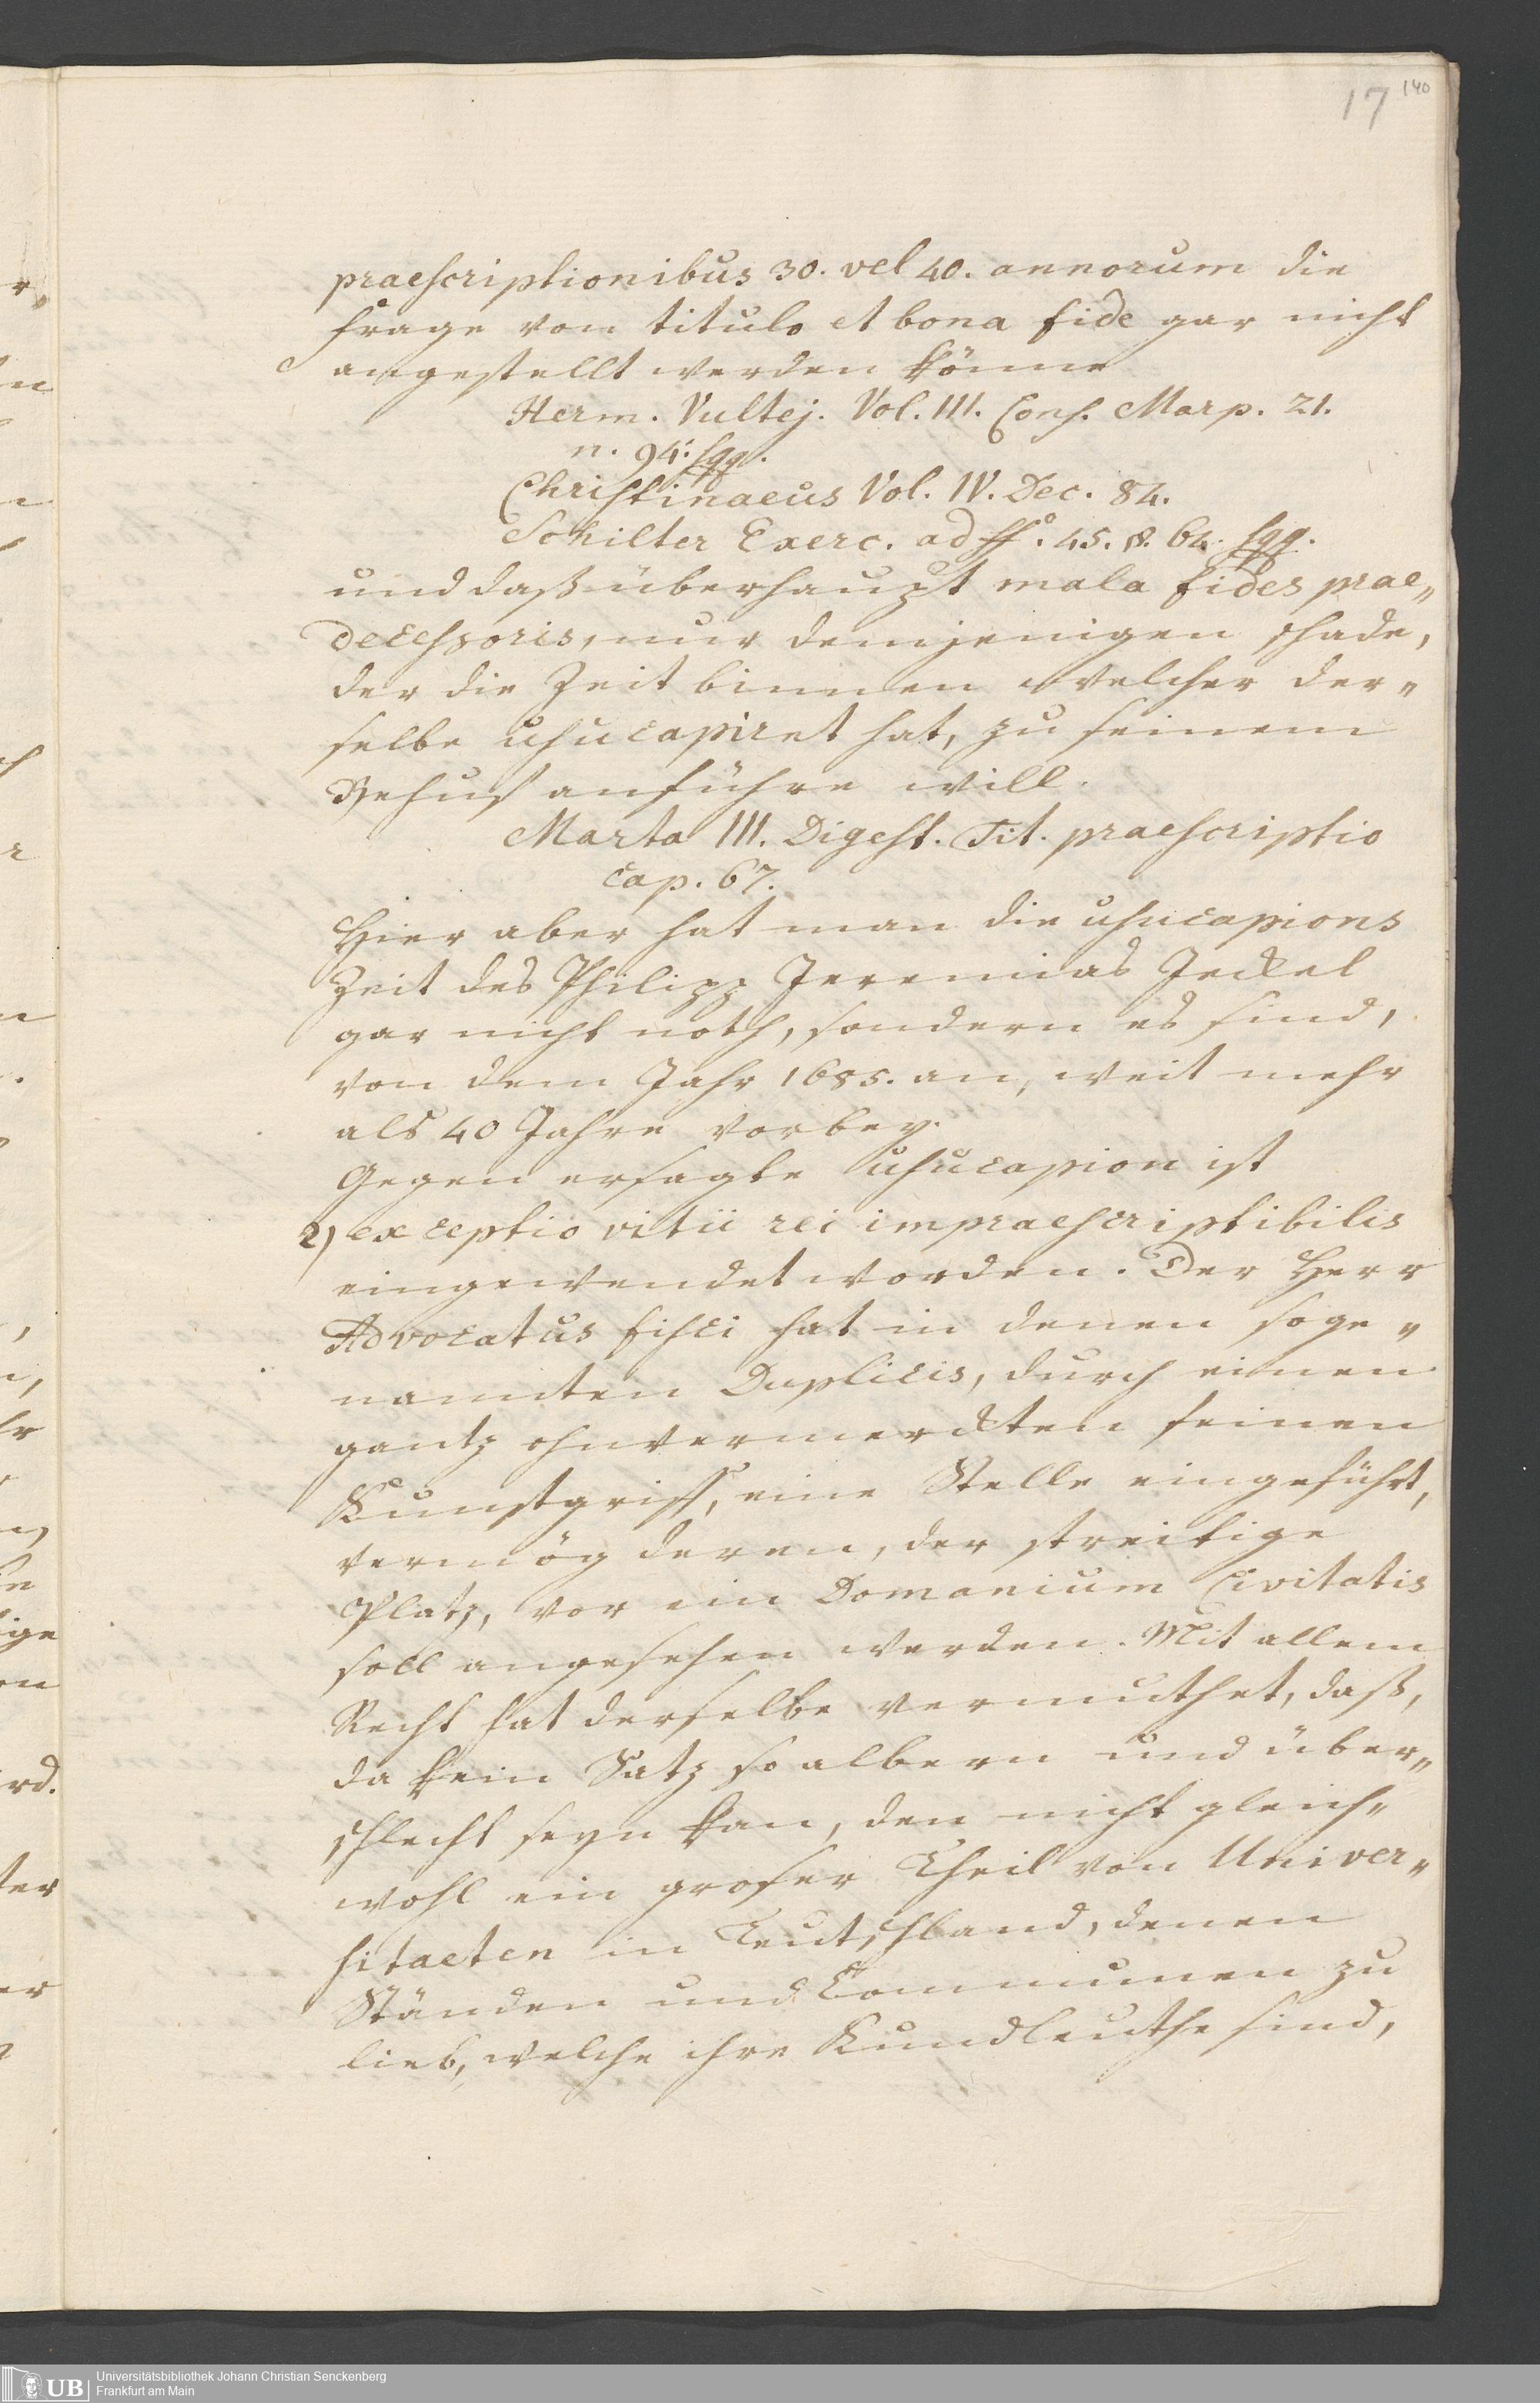 17 140
praescriptionibus 30. vel 40. annorum die
Frage von titulo et bona fide gar nicht
angestellt werden könne
Herm. Vultej. Vol. III. Cons. Marp. 21.
n. 94. sqq.
Christinaeus Vol. IV. Dec. 84.
Schilter Exerc. ad ff. 45. §. 64. sqq.
und daß überhaupt mala fides prae„
decessoris, nur demjenigen schade,
der die Zeit binnen welcher der„
selbe usucapiret hat, zu seinem
Behuf anführe will.
Marta III. Digest. Tit. praescriptio
cap. 67.
Hier aber hat man die usucapions
Zeit des Philipp Jeremias Jeckel
gar nicht noth, sondern es sind,
von dem Jahr 1685. an, weit mehr
als 40 Jahre vorbey.
Gegen ersagte usucapion ist
2) exceptio vitii rei impraescriptibilis
eingewendet worden. Der Herr
Advocatus fisci hat in denen soge„
nannten Duplicis, durch einen
gantz ohnvermerckten feinen
Kunstgriff, eine Stelle eingeführt,
vermög deren, der streitige
Platz, vor ein Domanium Civitatis
soll angesehen werden. Mit allem
Recht hat derselbe vermuthet, daß,
da kein Satz so albern und über„
schlecht seyn kan, den nicht gleich„
wohl ein groser Theil von Univer„
sitaeten in Teutschland, denen
Ständen und Communen zu
lieb, welche ihre Kundleuthe sind,
UB Universitätsbibliothek Johann Christian Senckenberg
Frankfurt am Main